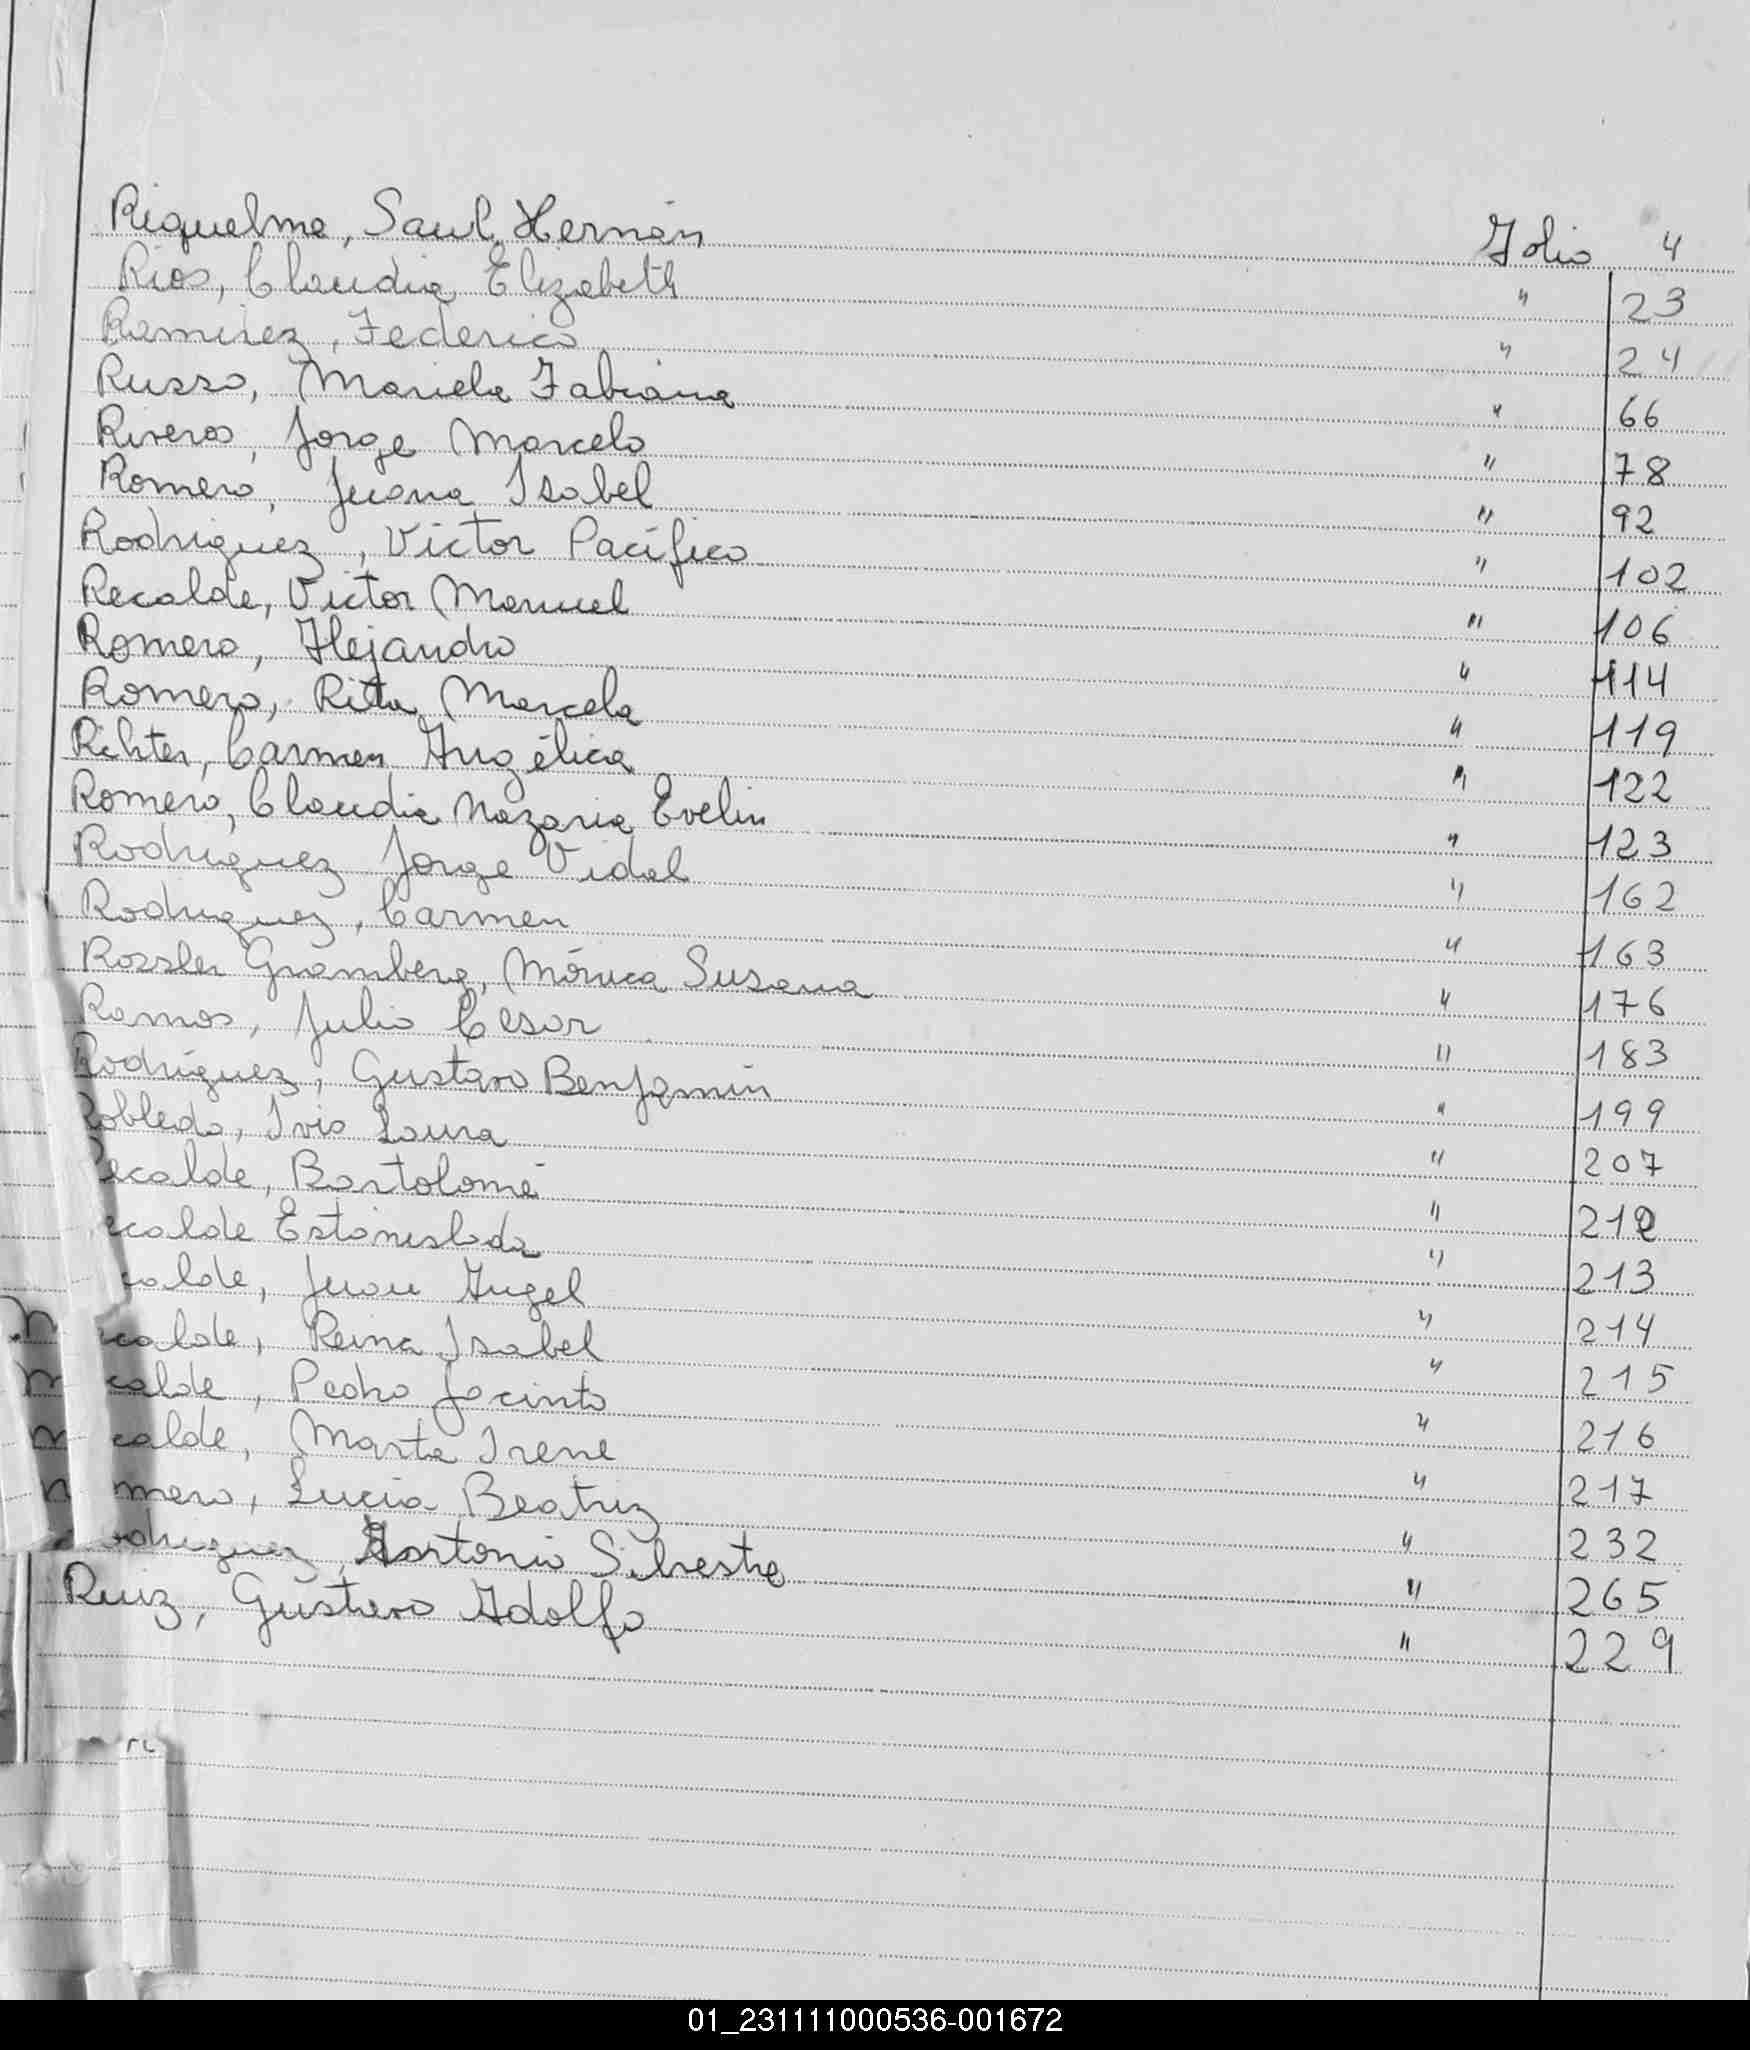 Riquelme, Saul Hernán Folio 4
Rios, Claudia Elizabeth " 23
Ramirez, Federico " 24
Russo, Mariela Fabiana " 66
Riveros, Jorge Marcelo " 78
Romero, Juana Isabel " 92
Rodriguez, Victor Pacífico " 102
Recalde, Victor Manuel " 106
Romero, Alejandro " 114
Romero, Rita Marcela " 119
Richter, Carmen Angélica " 122
Romero, Claudia Nazaria Evelin " 123
Rodriguez Jorge Vidal " 162
Rodriguez, Carmen " 163
Rossler Gramberg, Mónica Susana " 176
Ramos, Julio Cesar " 183
Rodríguez, Gustavo Benjamín " 199
Robledo, Ivis Laura " 207
ecalde, Bartolomé " 212
ecalde Estanislada " 213
calde, Juan Angel " 214
ecalde, Reina Isabel " 215
calde, Pedro Jacinto " 216
calde, Marta Irene " 217
mero, Lucia Beatriz " 232
odriguez, Antonio Silvestre " 265
Ruiz, Gustavo Adolfo " 229
01_231111000536-001672